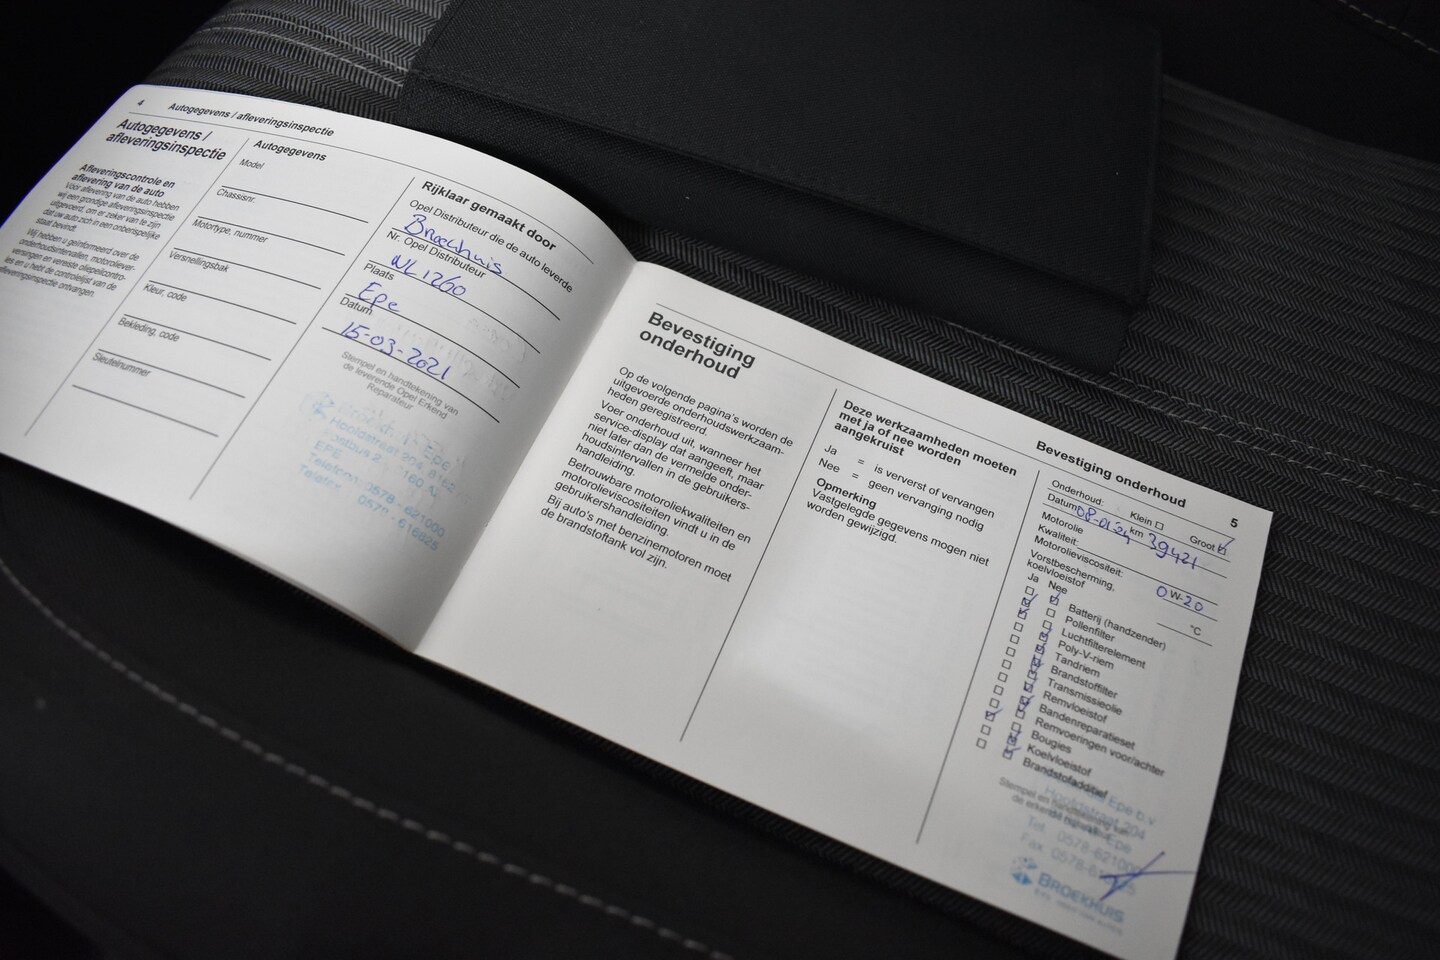 4 Autogegevens / afleveringsinspectie
Autogegevens /
afleveringsinspectie
Afleveringscontrole en
aflevering van de auto
Vóór aflevering van de auto hebben
wij een grondige afleveringsinspectie
uitgevoerd, om er zeker van te zijn
dat uw auto zich in een onberispelijke
staat bevindt.
Wij hebben u geïnformeerd over de
onderhoudsintervallen, motoroliever-
versingen en vereiste oliepeilcontro-
les en u hebt de controlelijst van de
afleveringsinspectie ontvangen.
Autogegevens
Model
Chassisnr.
Motortype, nummer
Versnellingsbak
Kleur, code
Bekleding, code
Sleutelnummer
Rijklaar gemaakt door
Opel Distributeur die de auto leverde
Broekhuis
Nr. Opel Distributeur
NL1260
Plaats
Epe
Datum
15-03-2021
Stempel en handtekening van
de leverende Opel Erkend
Reparateur
Epe
Hoofdstraat 204 8162
Postbus 2 8160 A
EPE
Telefoon: 0578 - 621000
0578 - 616825
Bevestiging
onderhoud
Op de volgende pagina's worden de
uitgevoerde onderhoudswerkzaam-
heden geregistreerd.
Voer onderhoud uit, wanneer het
service-display dat aangeeft, maar
niet later dan de vermelde onder-
houdsintervallen in de gebruikers-
handleiding.
Betrouwbare motoroliekwaliteiten en
motorolieviscositeiten vindt u in de
gebruikershandleiding.
Bij auto's met benzinemotoren moet
de brandstoftank vol zijn.
Deze werkzaamheden moeten
met ja of nee worden
aangekruist
Ja = is ververst of vervangen
Nee = geen vervanging nodig
Opmerking
Vastgelegde gegevens mogen niet
worden gewijzigd.
Bevestiging onderhoud 5
Onderhoud: Klein ☐ Groot ☑
Datum 08-01-24 km 39421
Motorolie
Kwaliteit:
Motorolieviscositeit: 0W-20
Vorstbescherming,
koelvloeistof °C
Ja Nee
Batterij (handzender)
Pollenfilter
Luchtfilterelement
Poly-V-riem
Tandriem
Brandstoffilter
Transmissieolie
Remvloeistof
Bandenreparatieset
Remvoeringen voor/achter
Bougies
Koelvloeistof
Brandstofadditief
Stempel en handtekening van
Epe b.v.
Hoofdstraat 204
Epe
Tel. 0578-621000
Fax. 0578-
BROEKHUIS